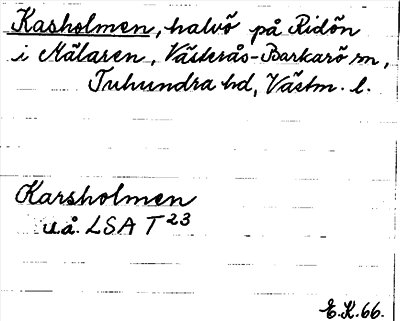 Kasholmen, halvö på Ridön
i Mälaren, Västerås-Barkarö sn,
Tuhundra hd, Västm. l.
Karsholmen
u.å. LSA T 23
E.K. 66.